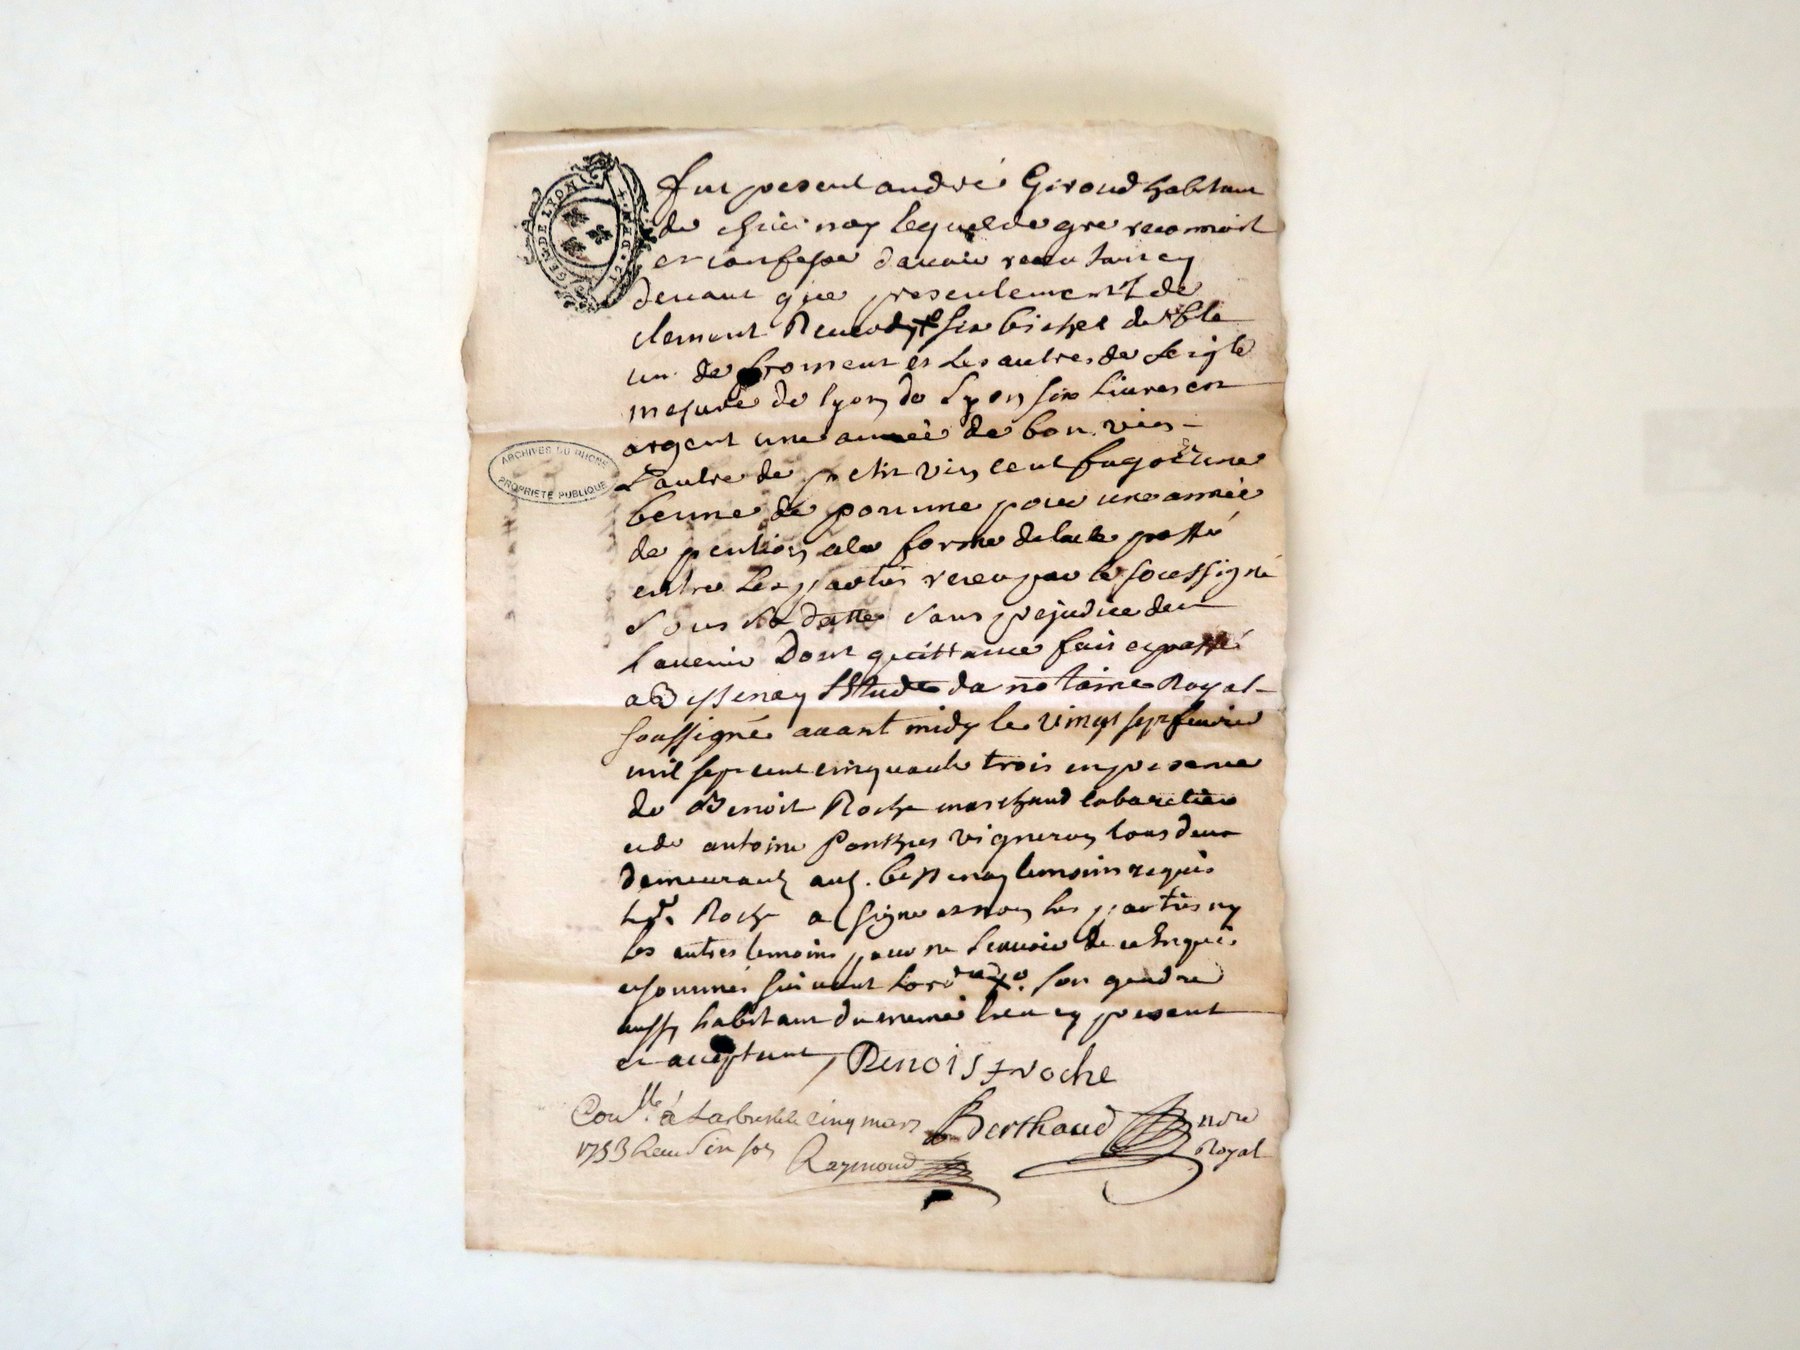 GEN. DE LYON
Fut present andré Giroud habitant
de lequel de gre reconnoit
et confesse d'avoir receu tant cy
devant que presentement de
clement six bichet de blé
un de froment et les autres de seigle
mesure de lyon de Lyon six livres en
argent une année de bon vin
l'autre de petit vin cent fagot une
benne de pomme pour une année
de pention a la forme de lacte passé
entre les parties receu par le soussigné
sous sa datte sans prejudice de
l'avenir Dont quittance fait et passé
a Bessenay Etude du notaire Royal
soussigné avant midy le vingt sept fevrier
mil sept cent cinquante trois en presence
de Benoit Roche marchand cabaretier
et de antoine vigneron tous deux
demeurants aud. bessenay temoins requis
led. Roche a signe et non les parties ny
les autres temoins pour ne scavoir de ce enquis
et sommés suivant lord son gendre
aussy habitant du meme lieu cy present
et acceptant Benoist roche
ARCHIVES DU RHONE
PROPRIÉTÉ PUBLIQUE
Con.lle à Larbresle cinq mars
1753
Berthaud
Royal
Raymond